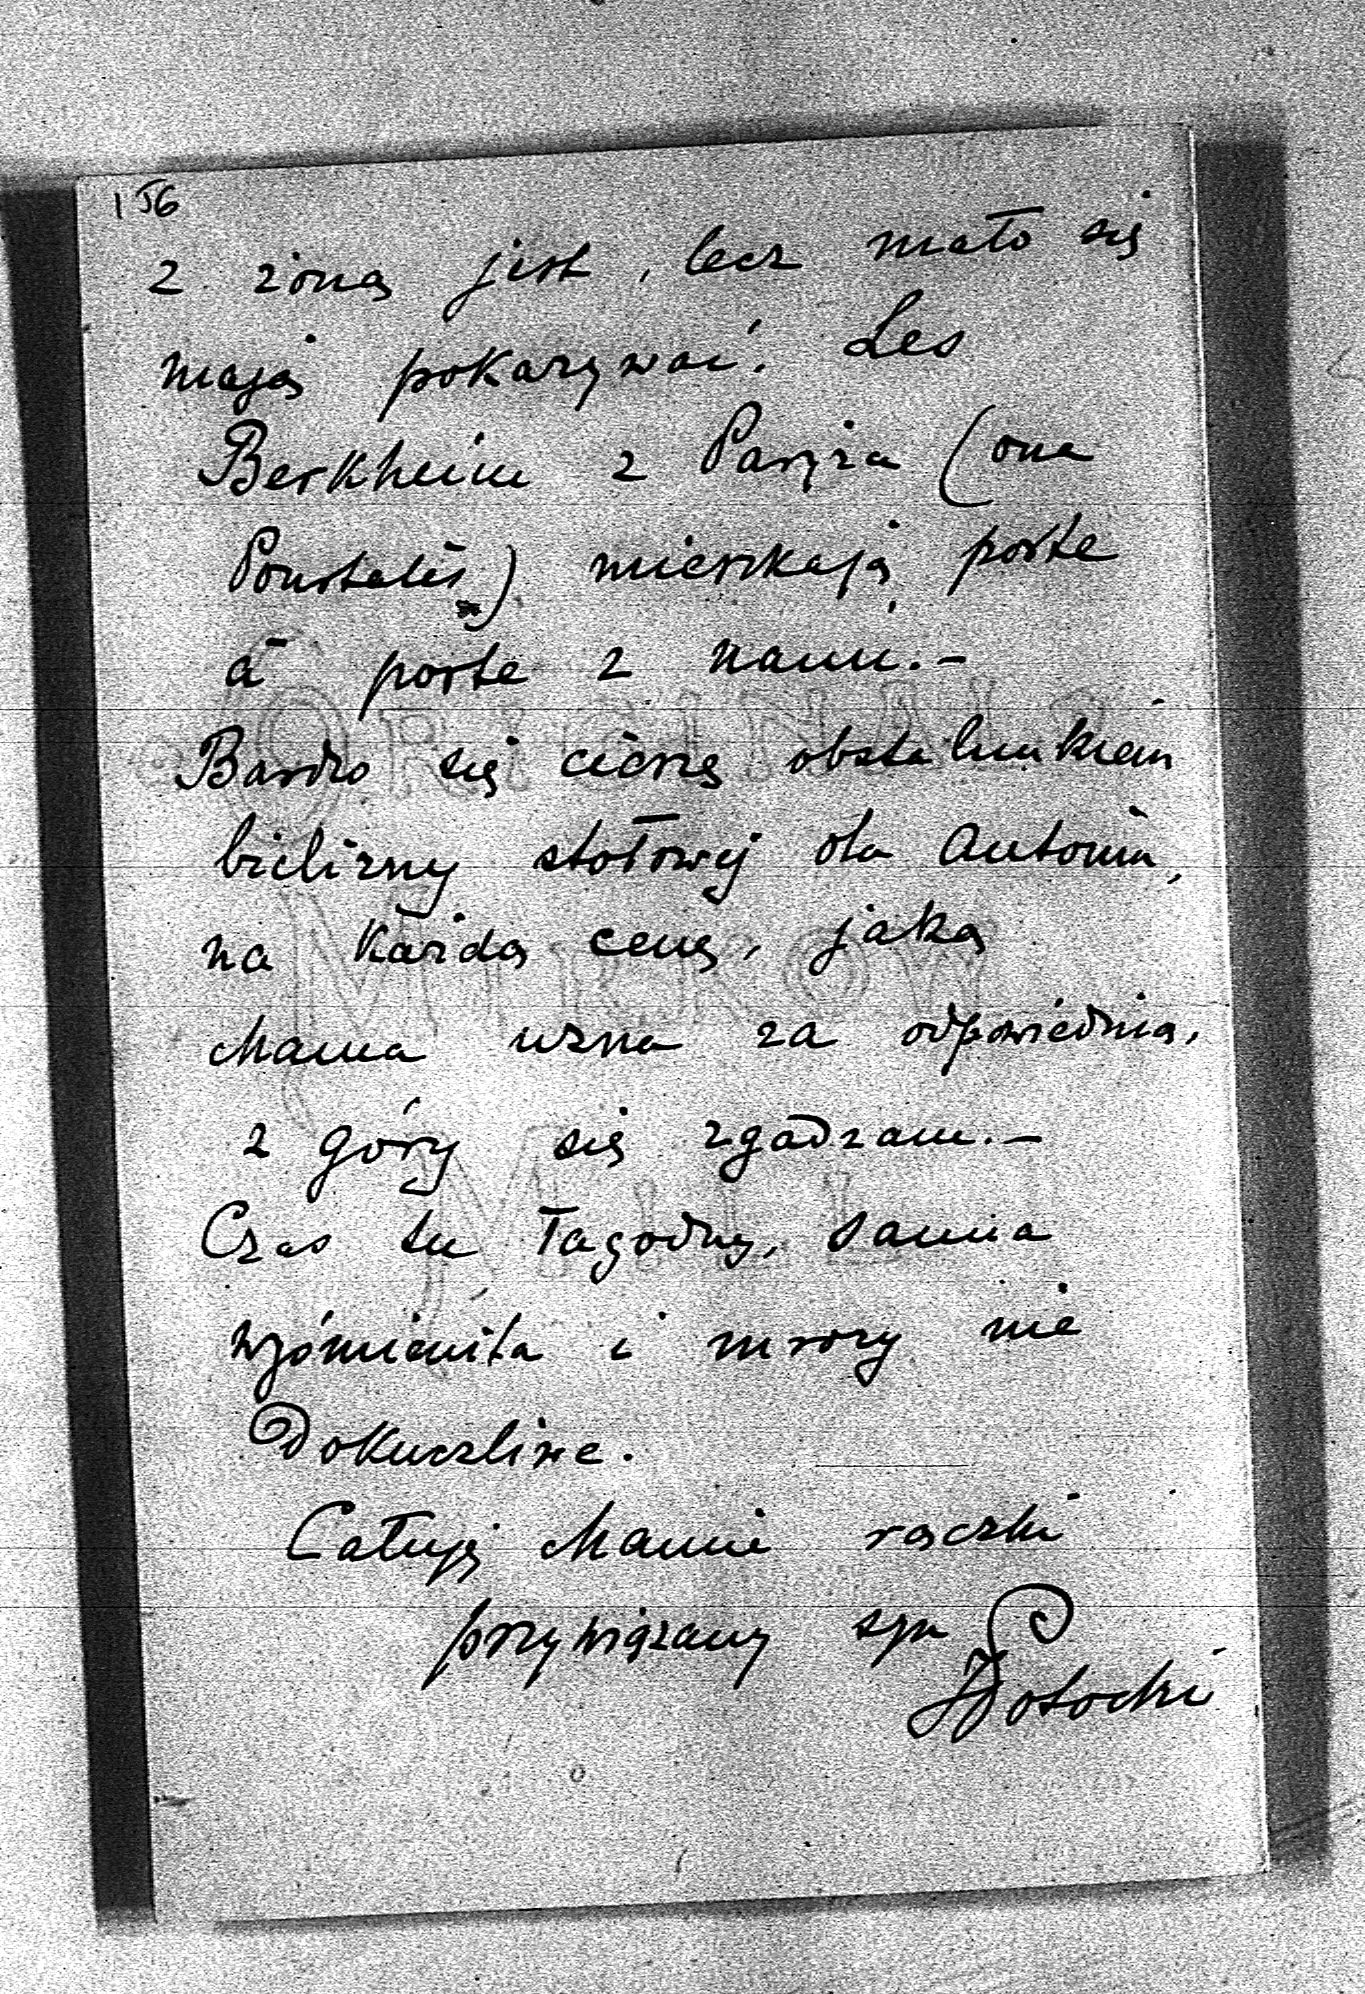 156
z żoną jest, lecz mało się
mają pokazywać. Les
Berkheim z Paryża (ona
Pourtalès) mieszkają porte
à porte z nami.—
Bardzo się cieszę obstalunkiem
bielizny stołowej dla Antonin,
na każdą cenę, jaką
Mama uzna za odpowiednią,
z góry się zgadzam.—
Czas tu łagodny, sanna
wyśmienita i mrozy nie
dokuczliwe.
Całuję Mamie rączki
przywiązany syn
JPotocki
ORIGINAL
MIRKOW
MILL